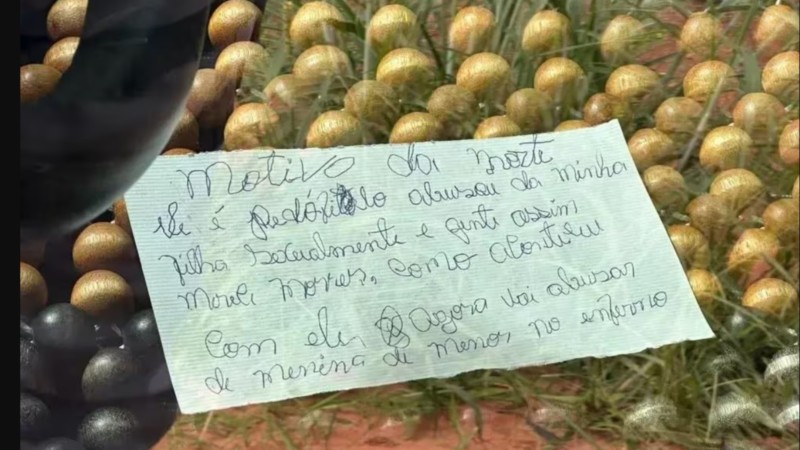 Motivo da morte
ele é pedófilo abusou da minha
filha sexualmente e gente assim
morre, como aconteceu
com ele agora vai abusar
de menina de menor no inferno